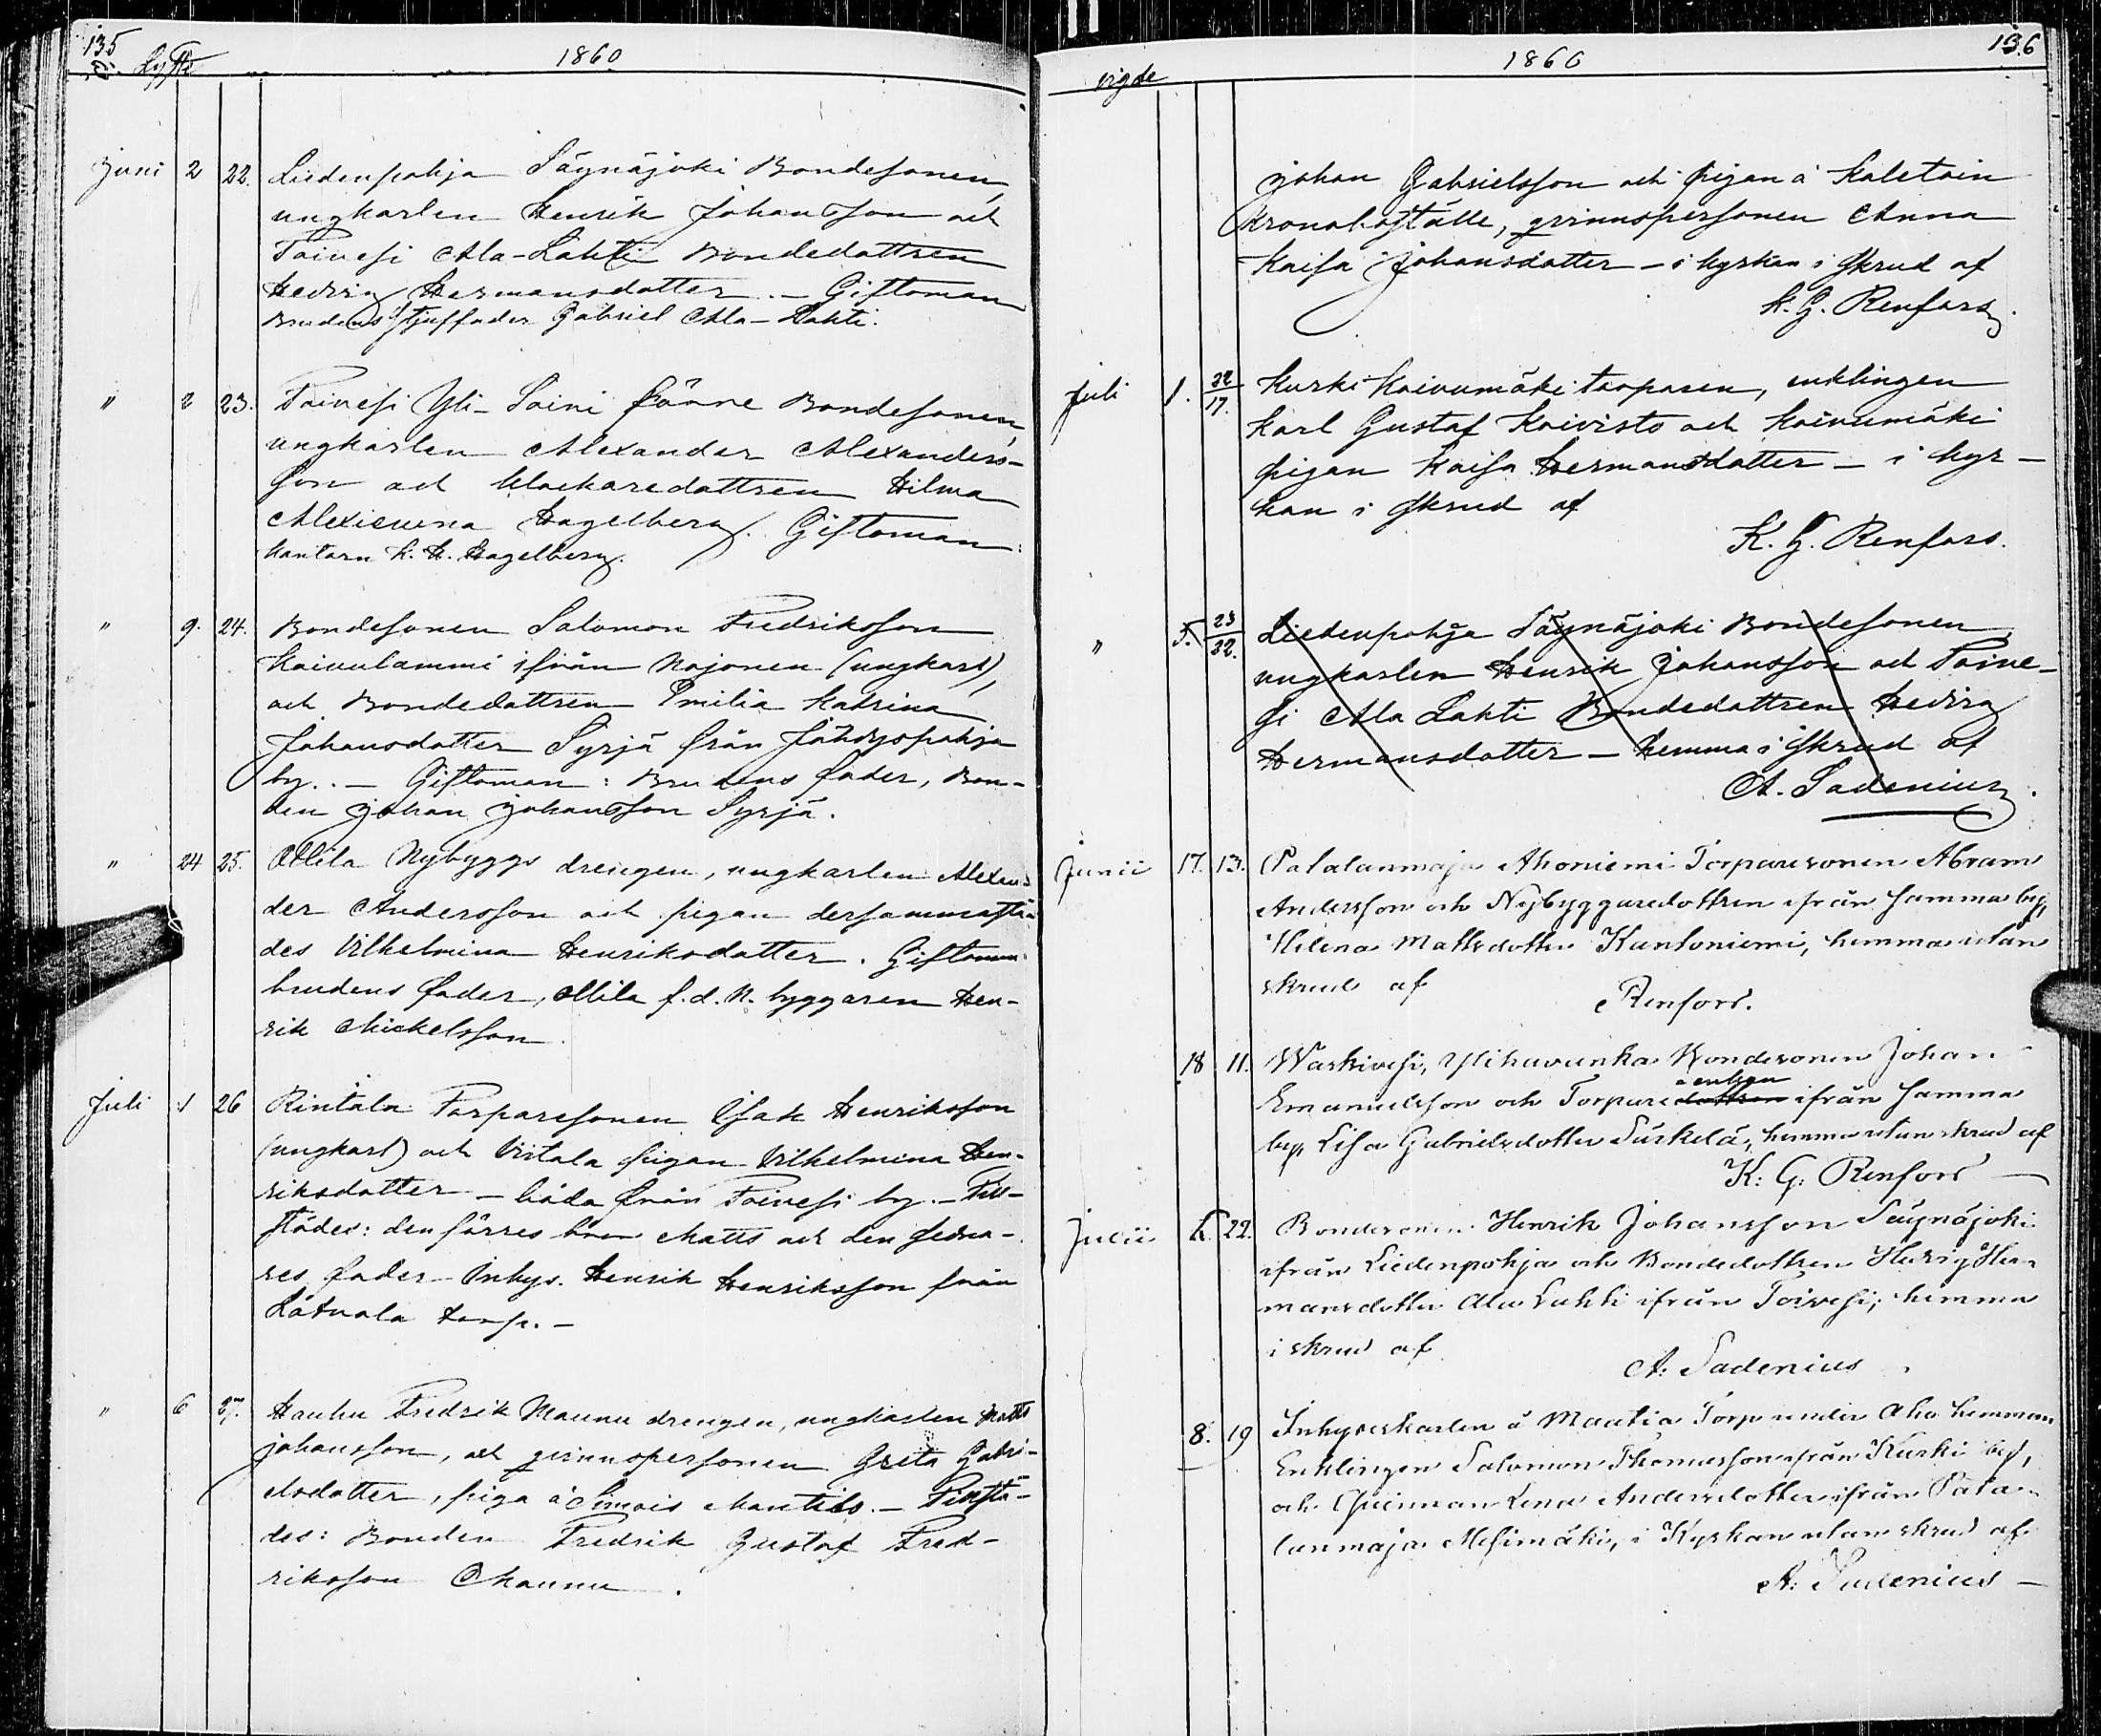 135
1860
Juni 2 22. Liedenpohja Säynäjoki Bondesonen,
ungkarlen Henrik Johansson och
Toivesi Ala-Lahti Bondedottren
Hedvig Hermansdotter. - Giftoman
Brudens styffader Gabriel Ala-Lahti.
" 2 23. Toivesi Yli-Soini Bondesonen,
ungkarlen Alexander Alexanders-
son och klockaredottren Hilma
Hagelberg. Giftoman:
kantorn K. H. Hagelberg.
" 9. 24. Bondesonen Salomon Fredriksson
Koivulammi ifrån (ungkarl),
och Bondedottren Emilia Katrina
Johansdotter Syrjä från Jähdyspohja
by. - Giftoman: Brudens fader, Bon-
den Johan Johansson Syrjä.
" 24 25. Ollila Nybyggs drengen, ungkarlen Alexan-
der Andersson och pigan dersammastä-
des Vilhelmina Henriksdotter. Giftoman
brudens fader, Ollila f.d. N. byggaren Hen-
rik Mickelsson.
Juli 1 26 Rintala Torparesonen Isak Henriksson
(ungkarl) och pigan Vilhelmina Hen-
riksdotter - båda från Toivesi by. - Till-
städes: den förres bror Matts och den sedna-
res fader Inhys. Henrik Henriksson från
Lätuala torp. -
" 6 27. Hauhu Fredrik Maunu drengen, ungkarlen Matts
Johansson, och qvinnspersonen Greta Gabri-
elsdotter, piga å . - Tillstä-
des: Bonden Fredrik Gustaf Fred-
riksson Maunu.
vigde
1860
136
Johan Gabrielsson och pigan å Kaletoin
Kronoboställe, qvinnspersonen Anna
Kaisa Johansdotter - i kyrkan i skrud af
K. G. Renfors.
Juli 1. 22/17. Kurki Koivumäki torparen, enklingen
Karl Gustaf Koivisto och Koivumäki
pigan Kaisa Hermansdotter - i kyr-
kan i skrud af
K. G. Renfors.
" 5. 23/22. Liedenpohja Säynäjoki Bondesonen,
ungkarlen Henrik Johansson och Toive-
si Ala Lahti Bondedottren Hedvig
Hermansdotter - hemma i skrud af
A. Sadenius.
Junii 17. 13. Patalanmaja Ahoniemi Torparesonen Abram
Andersson och Nybyggaredottren ifrån samma by,
Helena Mattsdotter Kantoniemi, hemma utan
skrud af
Renfors.
18 11. Waskivesi, Ylihavunka Bondesonen Johan
Emanuelsson och Torpare enkan ifrån samma
by, Lisa Gabrielsdotter , hemma utan skrud af
K: G: Renfors
Julii 5. 22. Bondesonen Henrik Johansson Säynäjoki
ifrån Liedenpohja och Bondedottren Hedvig Her-
mansdotter Ala Lahti ifrån Toivesi, hemma
i skrud af
A: Sadenius
8. 19 Inhyseskarlen å Maatia Torp under Aho hemman
Enklingen Salomon Thomasson ifrån Kurki by,
och Qvinnan Lena Andersdotter ifrån Pata-
lanmaja Mesimäki, i Kyrkan utan skrud af
A: Sadenius